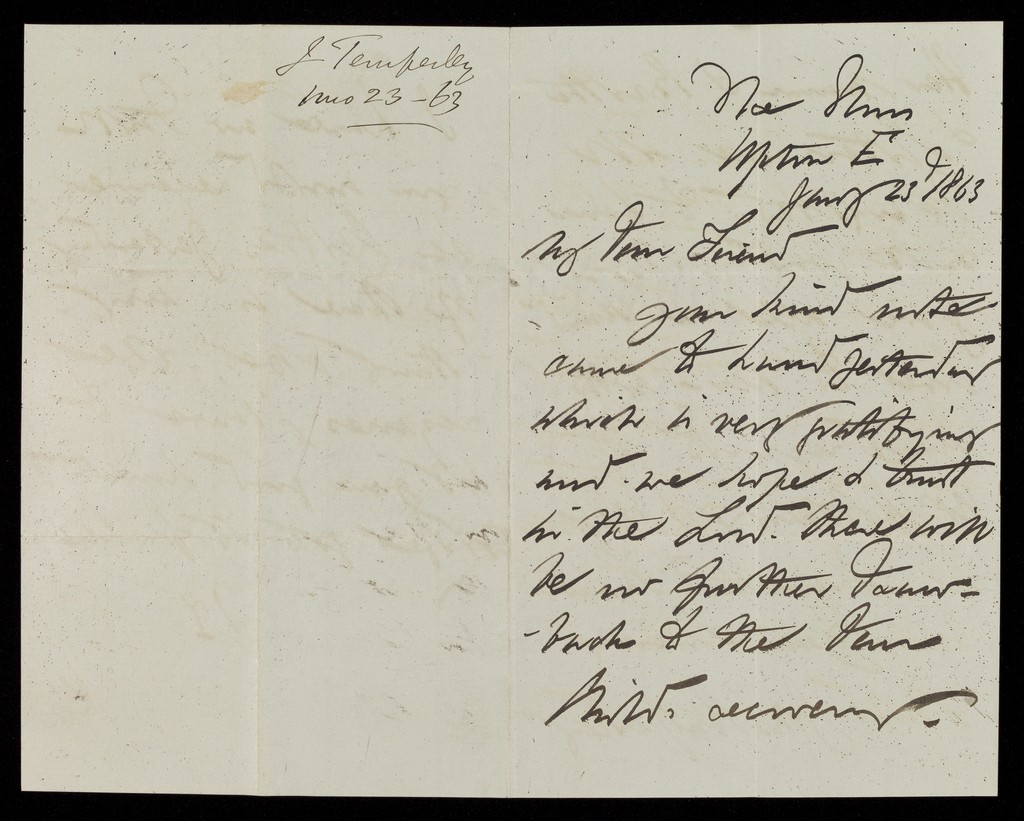 J Temperley
1mo 23 - 63
The
Upton E
Jany 23d 1863
My Dear Friend
your kind note
came to hand yesterday
which is very gratifying
and we hope & trust
in the Lord. there will
be no further draw-
-back to the dear
Child's recovery.